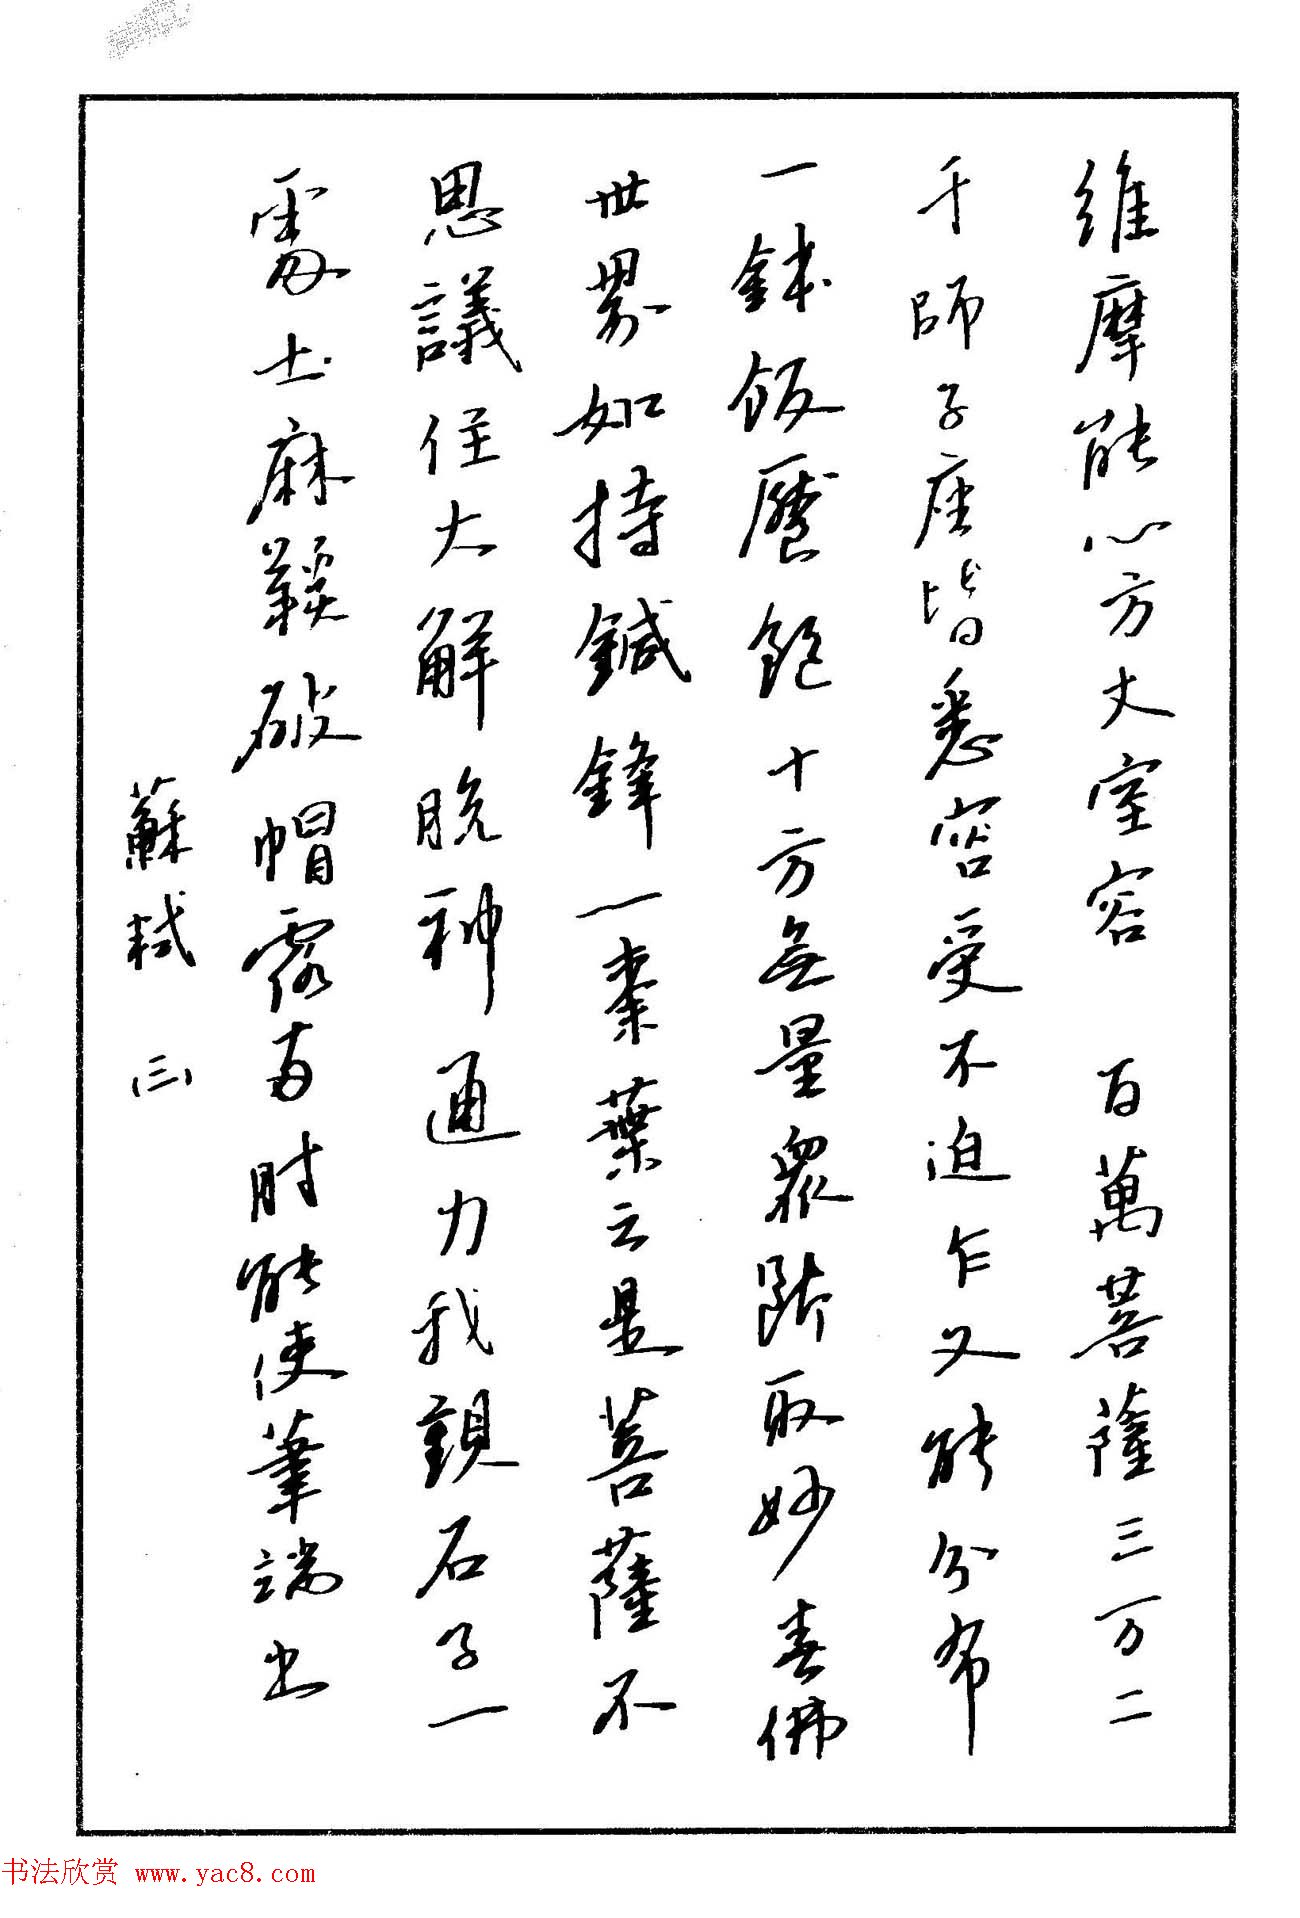 維摩能以方丈室容 百萬菩薩三万二
千師子座皆悉容受不迫乍又能分布
一鉢飯饜飽十方無量眾斷取妙喜佛
世界如持鍼鋒一棗葉云是菩薩不
思議住大解脫神通力我觀石子一
處士麻鞵破帽露兩肘能使筆端出
蘇軾 (三)
书法欣赏 www.yac8.com